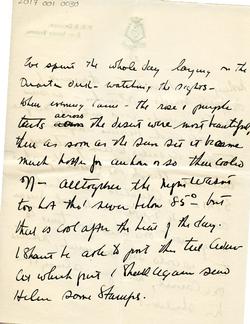 2017 001 0030
We spent the whole day laying on the
Quarter Deck - watching the sights -
When evening came - the rose & purple
tints across the desert were most beautiful
then as soon as the sun set it became
much hotter for an hour or so then cooled
off - alltogether the night was not
too hot tho' never below 85° - but
that is cool after the heat of the day.
I shant be able to post this till Aden
at which port I shall again send
Helen some stamps.